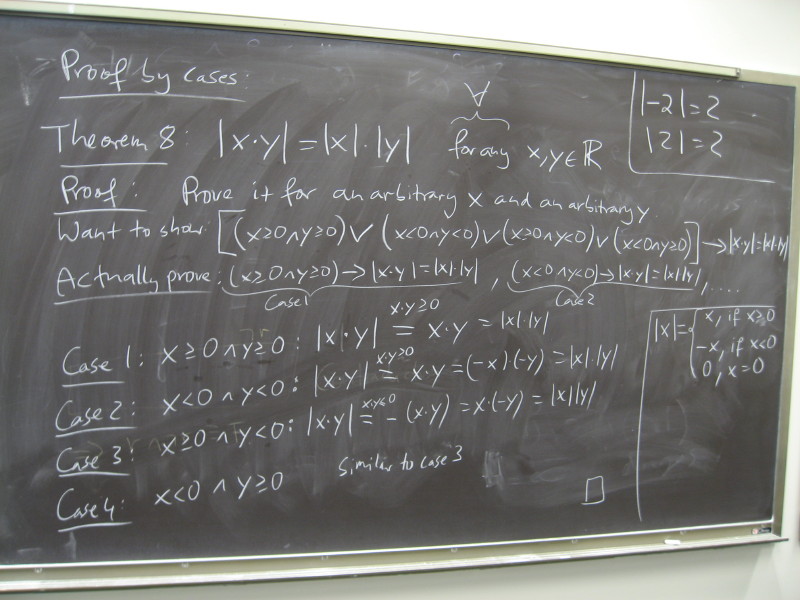 Proof by cases:
∀
Theorem 8: |x·y| = |x|·|y| for any x,y∈ℝ
|-2| = 2
|2| = 2
Proof: Prove it for an arbitrary x and an arbitrary y.
Want to show: [(x≥0∧y≥0)∨(x<0∧y<0)∨(x≥0∧y<0)∨(x<0∧y≥0)]→|x·y|=|x|·|y|
Actually prove: (x≥0∧y≥0)→|x·y|=|x|·|y|, (x<0∧y<0)→|x·y|=|x||y|, ....
Case 1 Case 2
x·y≥0
Case 1: x≥0∧y≥0: |x·y| = x·y = |x|·|y|
x·y≥0
Case 2: x<0∧y<0: |x·y| = x·y = (-x)(-y) = |x|·|y|
x·y≤0
Case 3: x≥0∧y<0: |x·y| = -(x·y) = x·(-y) = |x||y|
Case 4: x<0∧y≥0 Similar to case 3
□
|x| = { x, if x≥0
-x, if x<0
0, x=0